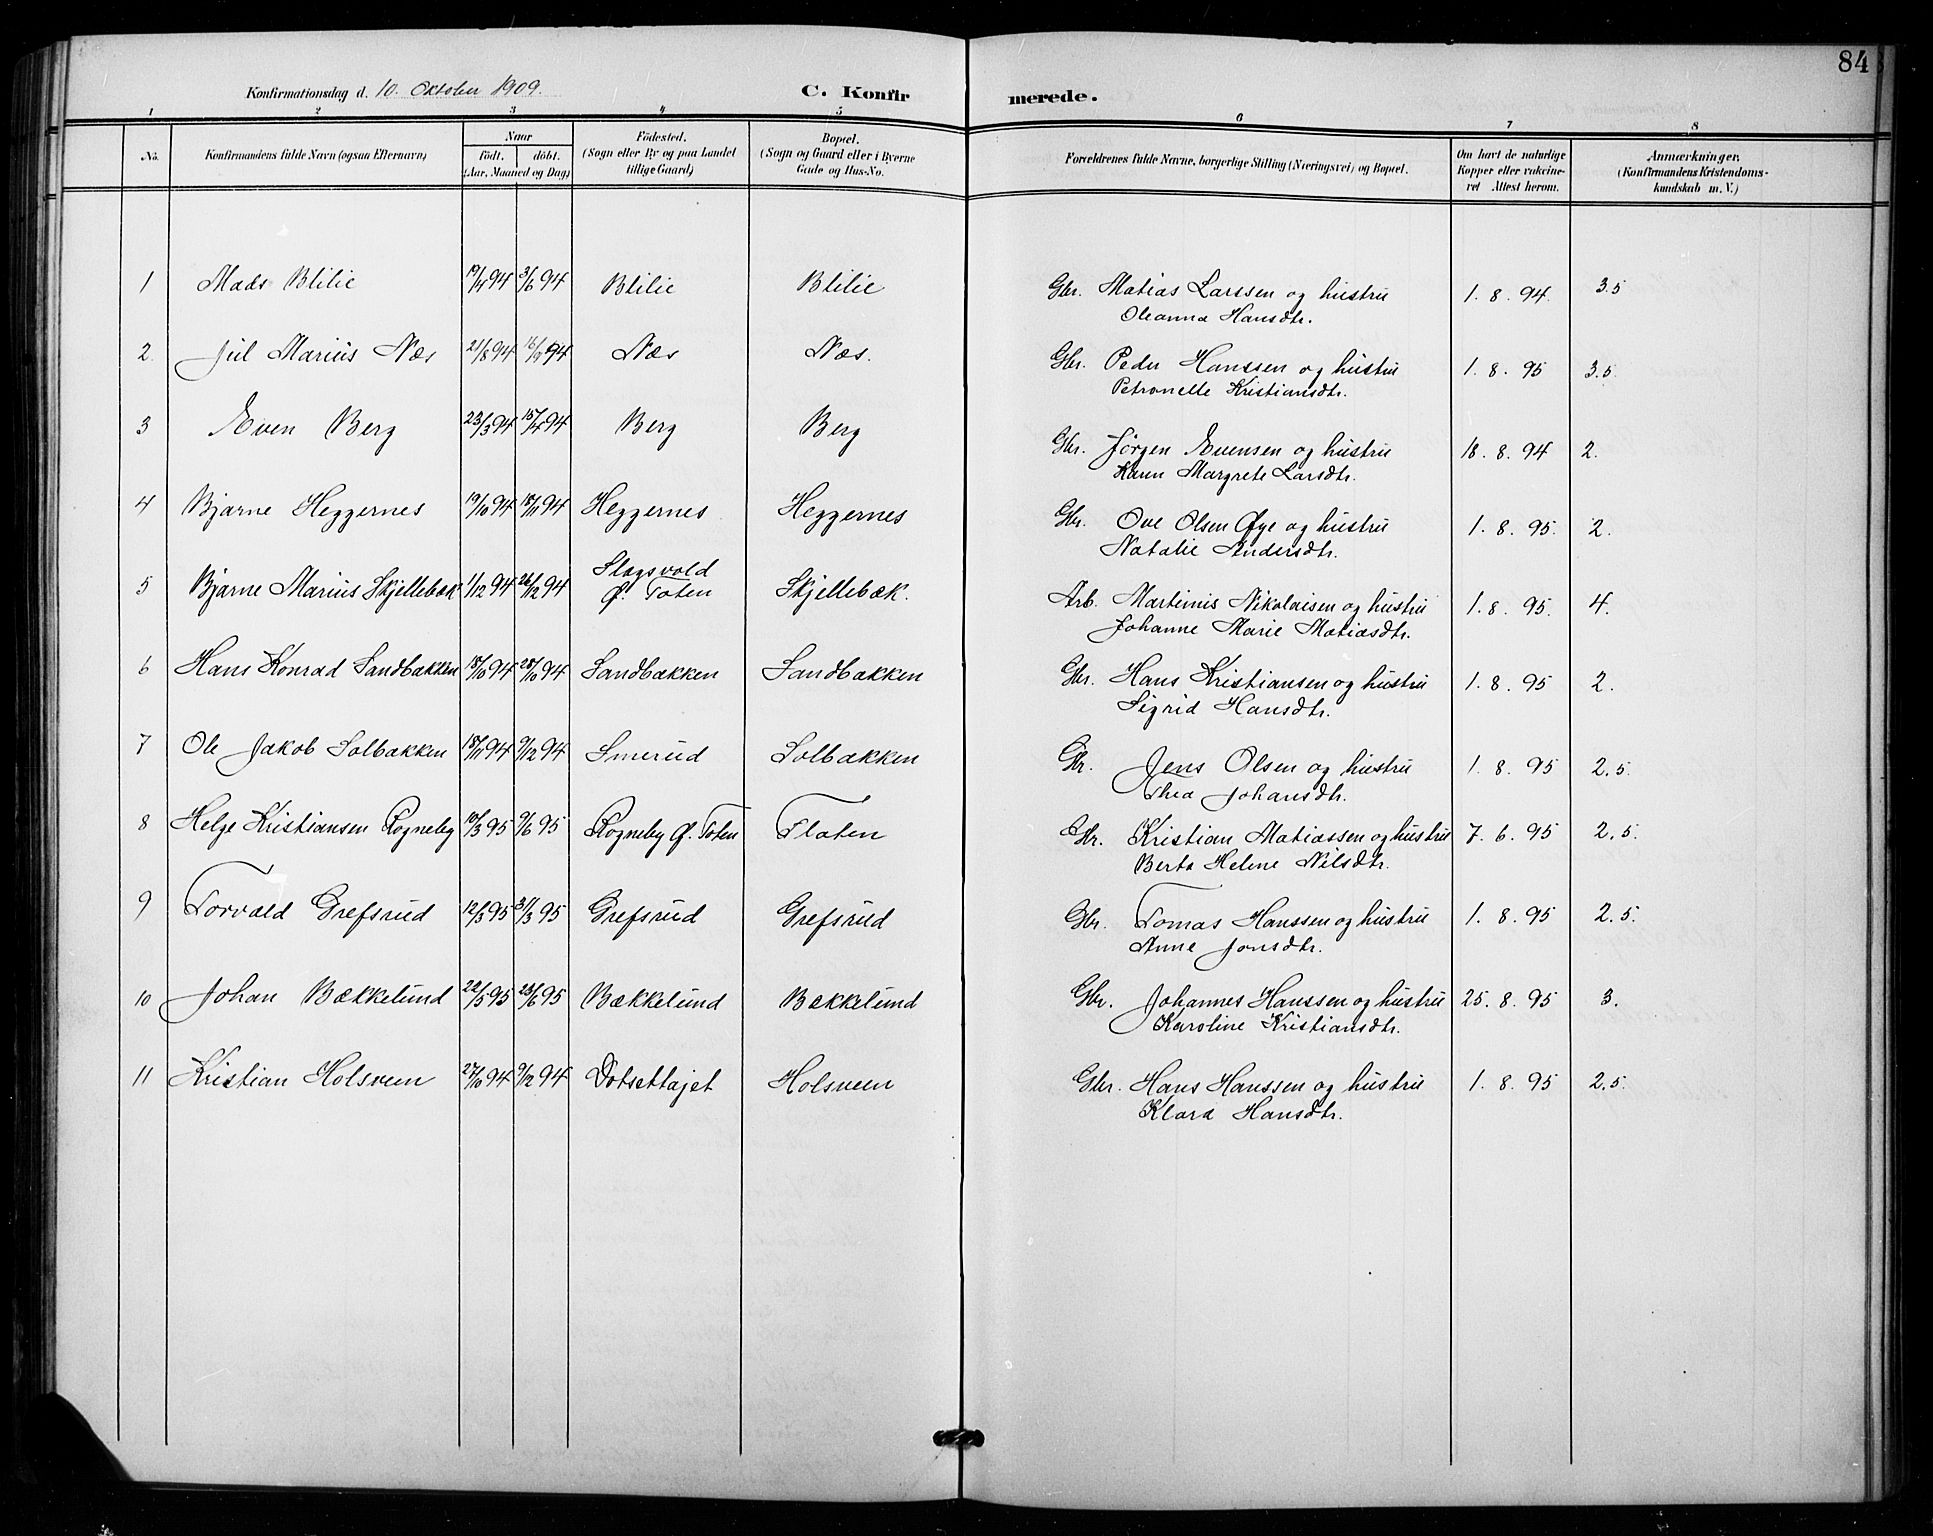 84
Konfirmationsdag d. 10. Oktober 1909.
C. Konfirmerede.
1 2 3 4 5 6 7 8
No. | Konfirmandens fulde Navn (ogsaa Efternavn) | Naar født. døbt. (Aar, Maaned og Dag) | Fødested. (Sogn eller By og paa Landet tillige Gaard) | Bopæl. (Sogn og Gaard eller i Byerne Gade og Hus-No. | Forældrenes fulde Navne, borgerlige Stilling (Næringsvei) og Bopæl. | Om havt de naturlige Kopper eller vakcineret Attest herom. | Anmærkninger. (Konfirmandens Kristendomskundskab m. V.)
1 Mads Blilie 19/4 94 3/6 94 Blilie Blilie Gbr. Matias Larssen og hustru 1. 8. 94. 3.5
Oleanna Hansdtr.
2. Jul Marius Næs 21/8 94 94 Næs Næs. Gbr. Peder Hanssen og hustru 1. 8. 95 3.5.
Petronelle Kristiansdtr.
3 Even Berg 23/3 94 15/4 94 Berg Berg Gbr. Jørgen Evensen og hustru 18. 8. 94 2.
Karen Margrete Larsdtr.
4 Bjarne Heggernes 19/10 94 18/11 94 Heggernes Heggernes Gbr. Ove Olsen Øye og hustru 1. 8. 95. 2.
Natalie Andersdtr.
5 Bjarne Marius Skjellebæk 1/12 94 26/12 94 Slagsvold Ø. Toten Skjellebæk. Arb. Martinius Nikolaisen og hustru 1. 8. 95. 4.
Johanne Marie Matiasdtr.
6 Hans Konrad Sandbakken 18/10 94 28/10 94 Sandbakken Sandbakken Gbr. Hans Kristiansen og hustru 1. 8. 95 2.
Sigrid Hansdtr.
7 Ole Jakob Solbakken 18/11 94 9/12 94 Smerud Solbakken Gbr. Jens Olsen og hustru 1. 8. 95 2.5.
Thea Johansdtr.
8 Helge Kristiansen Rogneby 10/3 95 9/6 95 Rogneby Ø. Toten Flaten Gbr. Kristian Matiassen og hustru 7. 6. 95 2.5.
Berta Helene Nilsdtr.
9 Torvald Grefsrud 12/3 95 31/3 95 Grefsrud Grefsrud Gbr. Tomas Hanssen og hustru 1. 8. 95 2.5.
Anne Jonsdtr.
10 Johan Bækkelund 22/5 95 23/6 95 Bækkelund Bækkelund Gbr. Johannes Hanssen og hustru 25. 8. 95 3.
Karoline Kristiansdtr.
11 Kristian Holsveen 27/10 94 9/12 94 Dotsetlajet Holsveen Gbr. Hans Hanssen og hustru 1. 8. 95 2.5.
Klara Hansdtr.